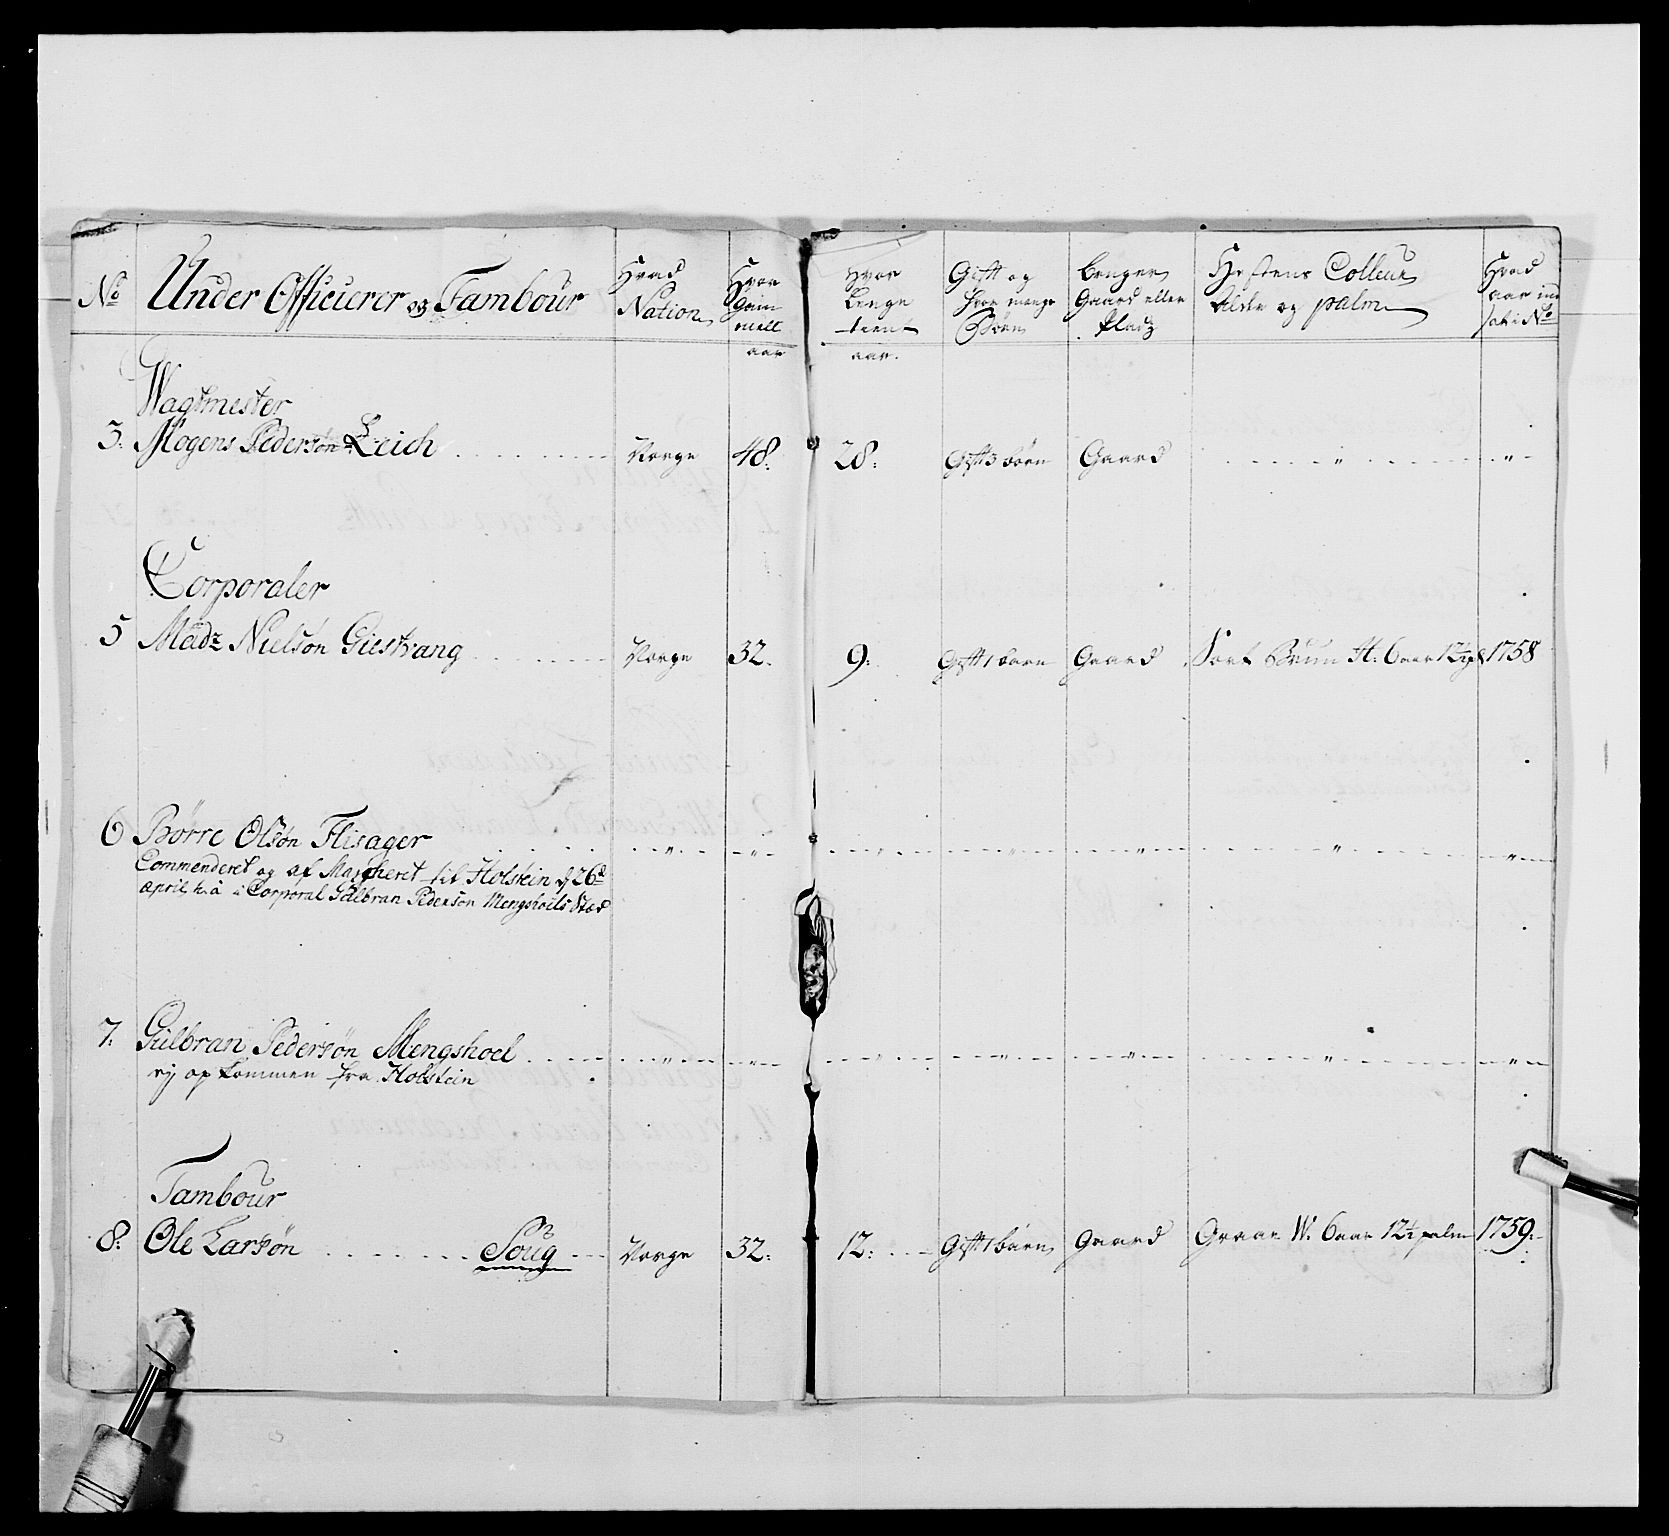 No Under Officierer og Tambour Hvad Nation Hvor gam mell aar Hvor lenge tient aar. Gift og hvor mange Børn beenger Gaard eller Pladz Hestens Colleur Alder og palm Hvad aar ind sat i No
Wagtmester
3. Mogens Pedersøn Leich Norge 48. 28. Gift 3 børn Gaard
Corporaler
5 Madz Nielsøn Giestvang Norge 32. 9. Gift 1 barn Gaard Sort Bruun H. 6 aar 12½ p 1758
6 Børre Olsøn Flisager
Commenderet og af Marcheret til Holstein d 26d
April h. a. i Corporal Gulbran Pedersøn Mengshoels Sted
7. Gulbran Pedersøn Mengshoel
ej op kommen fra Holstein
Tambour
8. Ole Larsøn Soug Norge 32. 12. Gift 1 barn Gaard Graae W. 6 aar 12½ palm 1759.